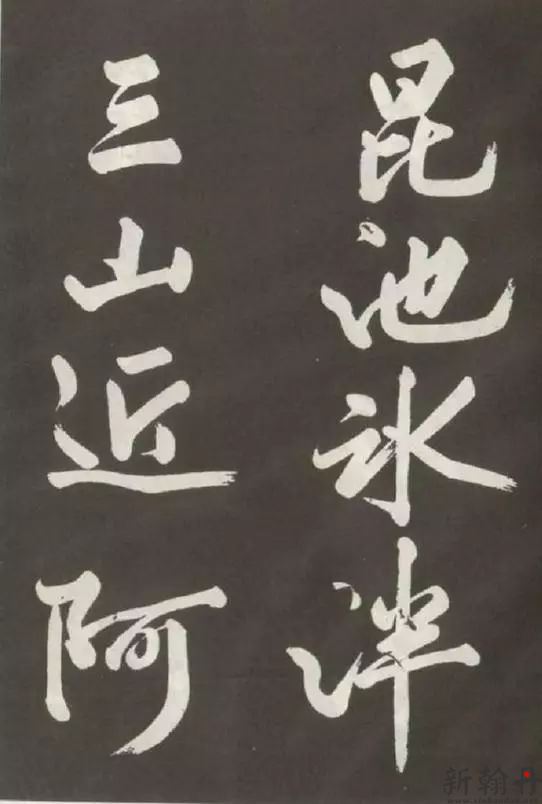 昆池氷泮
三山近阿
新翰